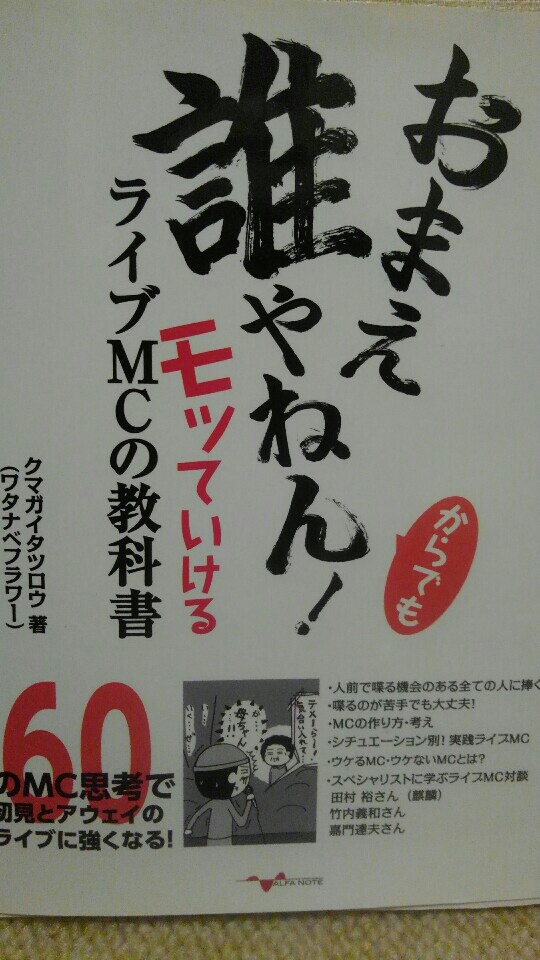 おまえ
誰やねん!
からでも
モッていける
ライブMCの教科書
クマガイタツロウ 著
(ワタナベフラワー)
60
のMC思考で
初見とアウェイの
ライブに強くなる!
・人前で喋る機会のある全ての人に捧ぐ
・喋るのが苦手でも大丈夫!
・MCの作り方・考え
・シチュエーション別! 実践ライブMC
・ウケるMC・ウケないMCとは?
・スペシャリストに学ぶライブMC対談
田村 裕さん (麒麟)
竹内義和さん
嘉門達夫さん
母ちゃん
ALFA NOTE